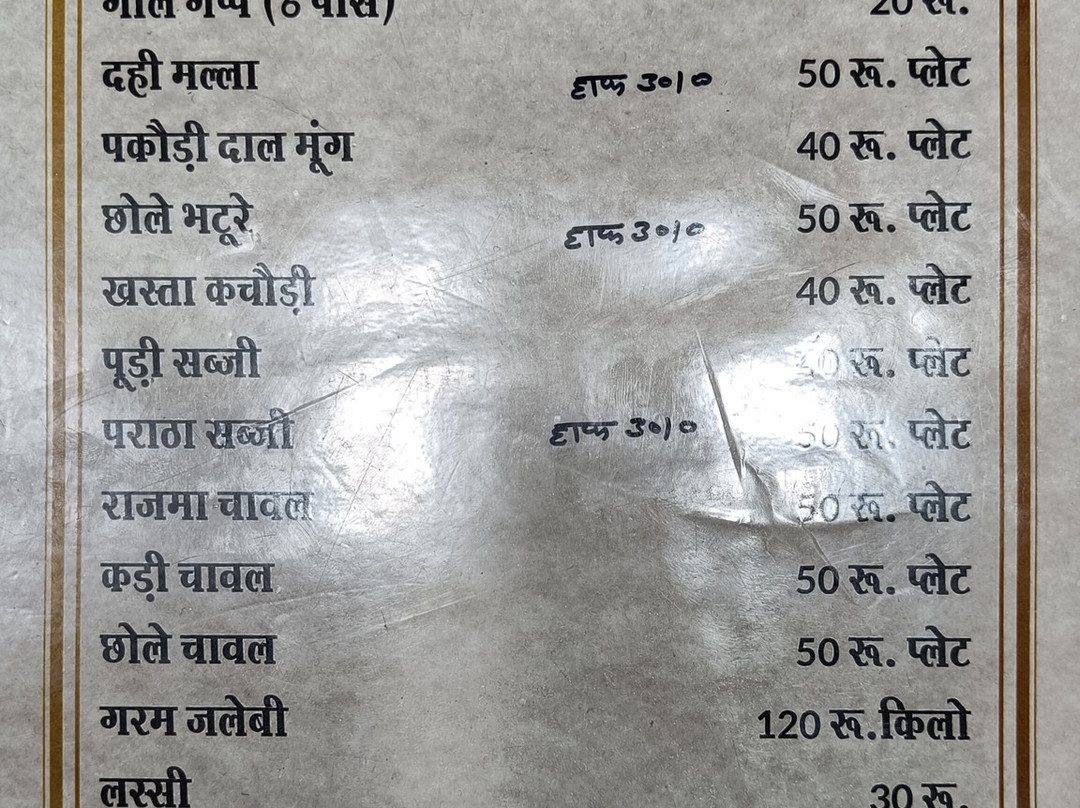 गोल गप्पे (6 पीस) 20 रू.
दही मल्ला हाफ 30/0 50 रू. प्लेट
पकौड़ी दाल मूंग 40 रू. प्लेट
छोले भटूरे हाफ 30/0 50 रू. प्लेट
खस्ता कचौड़ी 40 रू. प्लेट
पूड़ी सब्जी 40 रू. प्लेट
पराठा सब्जी हाफ 30/0 50 रू. प्लेट
राजमा चावल 50 रू. प्लेट
कड़ी चावल 50 रू. प्लेट
छोले चावल 50 रू. प्लेट
गरम जलेबी 120 रू.किलो
लस्सी 30 रू.